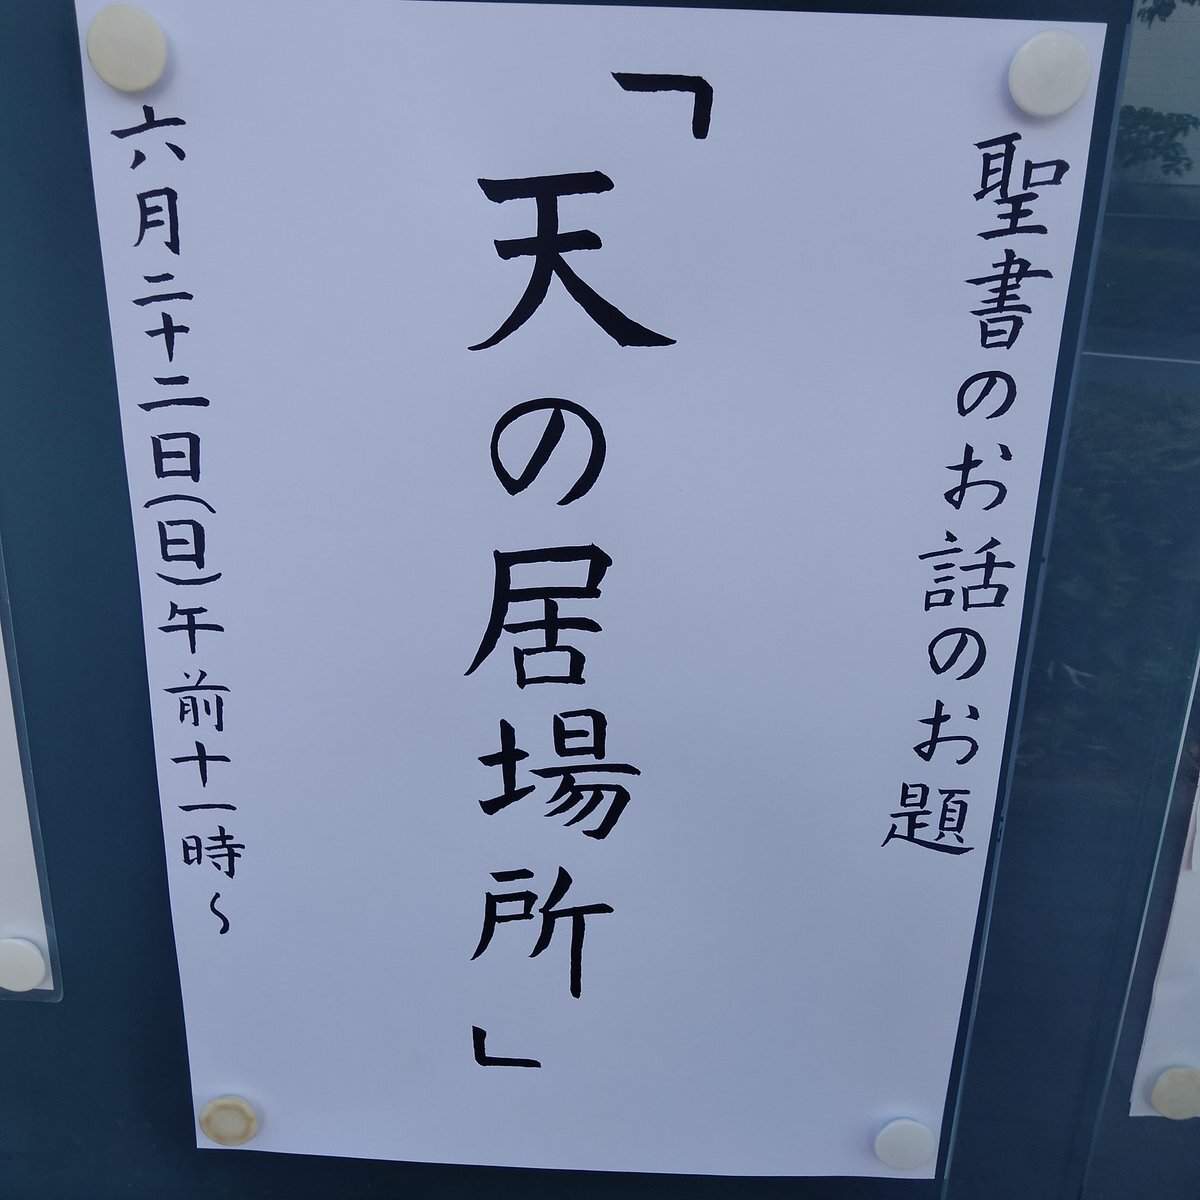 聖書のお話のお題
「天の居場所」
六月二十二日(日)午前十一時～